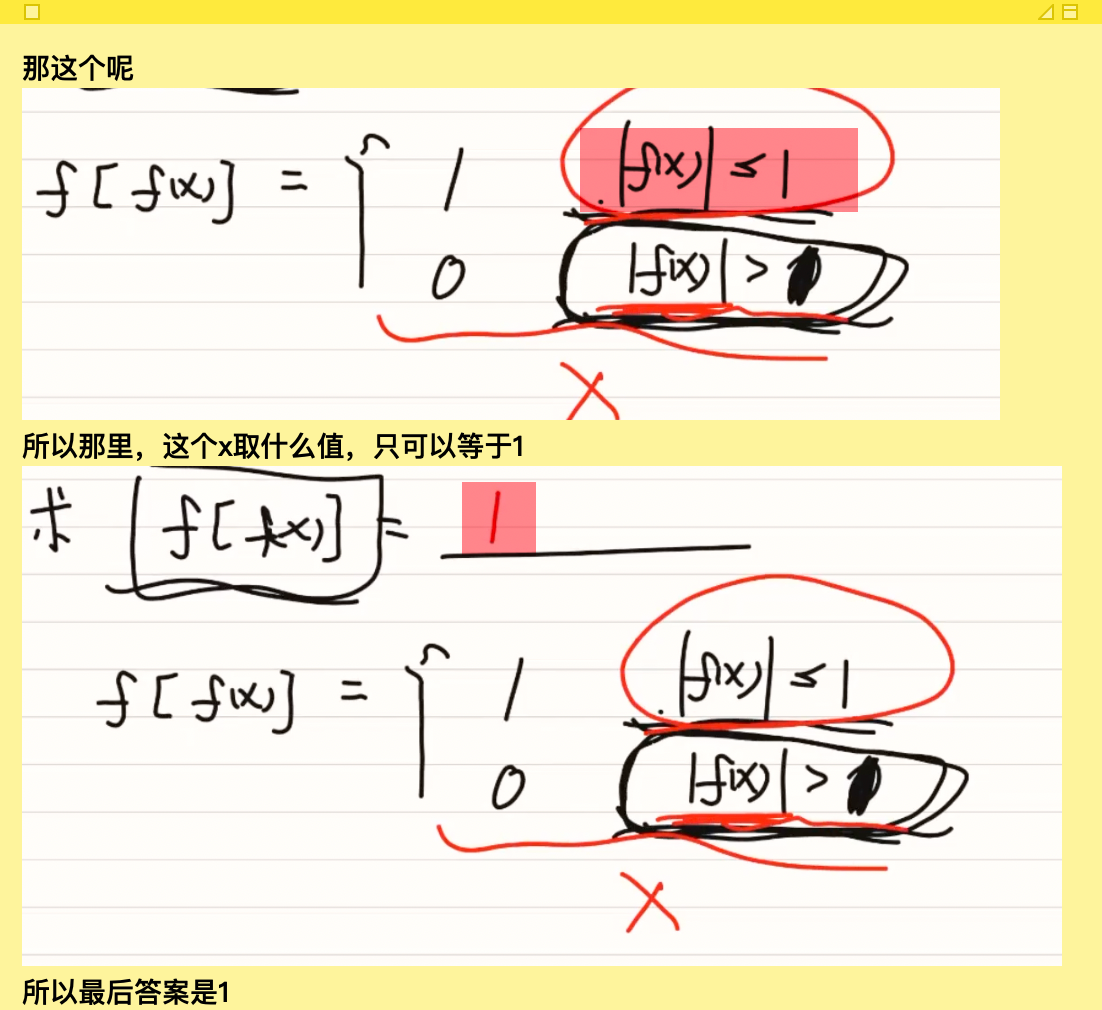 那这个呢
f[f(x)] = { 1 |f(x)| ≤ 1
0 |f(x)| >
X
所以那里，这个x取什么值，只可以等于1
求 f[f(x)] = 1
f[f(x)] = { 1 |f(x)| ≤ 1
0 |f(x)| >
X
所以最后答案是1